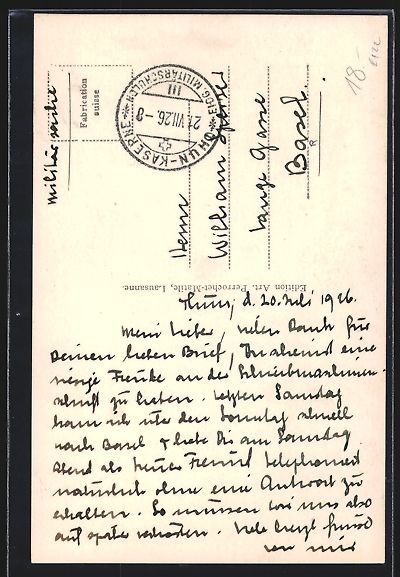 18.-
Fabrication
suisse
THUN-KASERNE
EIDG. MILITÄRSCHULEN
21.VII.26.-8
III
Herrn
William
Lange Gasse
Basel.
Edition Art. Perrochet-Matile, Lausanne.
Thun, d. 20. Juli 1926.
Mein Lieber, vielen Dank für
Deinen lieben Brief, Du scheinst eine
riesige Freude an der Schreibmaschinen-
schrift zu haben. Letzten Samstag
kam ich über den Sonntag schnell
nach Basel & habe Dir am Samstag
Abend als treuer Freund telephoniert
natürlich ohne eine Antwort zu
erhalten. So müssen wir uns also
auf später vertrösten. Viele herzl. Grüsse
von mir